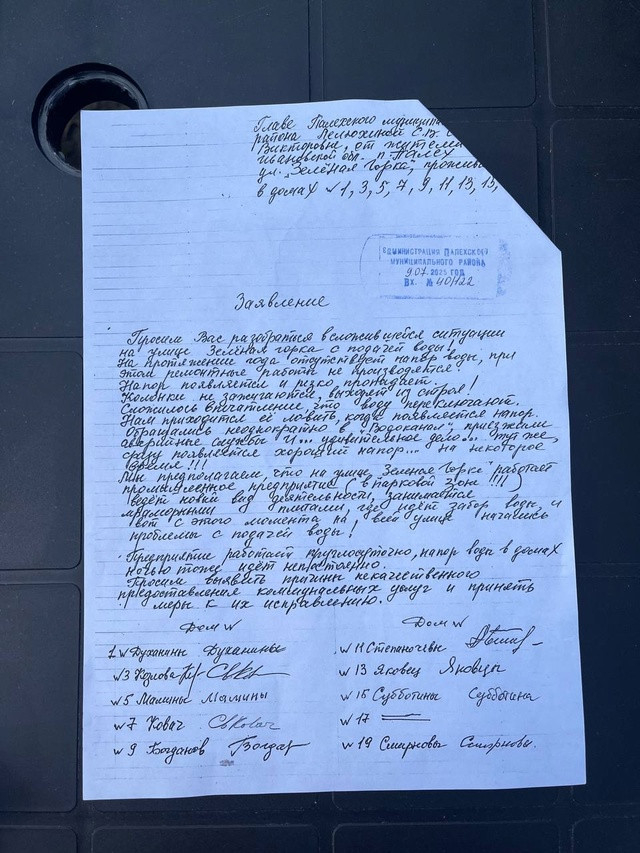 Главе Палехского муници
района Пелюхиной С.В.
Викторовны, от жителей
Ивановской обл. п. Палех
ул. „Зелёная Горка", прожив
в домах № 1, 3, 5, 7, 9, 11, 13, 15,
АДМИНИСТРАЦИЯ ПАЛЕХСКОГО
МУНИЦИПАЛЬНОГО РАЙОНА
9.07. 2025 ГОД
ВХ. №
Заявление
Просим Вас разобраться в сложившейся ситуации
на улице Зелёная горка с подачей воды!
На протяжении года отсутствует напор воды, при
этом ремонтные работы не производятся.
Напор появляется и резко пропадает.
Колонки не зажигаются, выходят из строя!
Сложилось впечатление, что воду переключают.
Нам приходится её ловить, когда появляется напор.
Обращались неоднократно в „Водоканал", приезжали
аварийные службы и... удивительное дело... тут же,
сразу появляется хороший напор... на некоторое
время!!!
Мы предполагаем, что на улице Зелёная Горка работает
промышленное предприятие (в парковой зоне!!!!)
ведёт новый вид деятельности, занимается
мраморными плитами, где идёт забор воды, и
вот с этого момента на всей улице начались
проблемы с подачей воды!
Предприятие работает круглосуточно, напор воды в домах
ночью тоже идёт непостоянно.
Просим выявить причины некачественного
предоставления коммунальных услуг и принять
меры к их исправлению.
Дом № Дом №
1 № Духанины Духанины № 11 Степаночевы
№ 3 Козлова № 13 Яковец Яковцы
№ 5 Малины Малины № 15 Субботины Субботина
№ 7 Ковач СвКовач № 17 —
№ 9 Богданов Богдан № 19 Смирновы Смирновы.